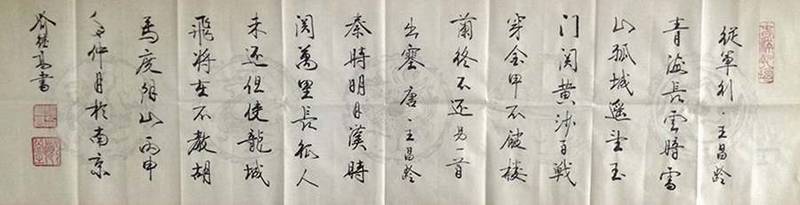 從軍行·王昌龄
青海長雲暗雪
山孤城遥望玉
门関黄沙百戰
穿金甲不破楼
蘭终不还 另一首
出塞 唐·王昌龄
秦時明月漢時
関萬里長征人
未还但使龍城
飛将在不教胡
馬度阴山 丙申
仲月於南京
書